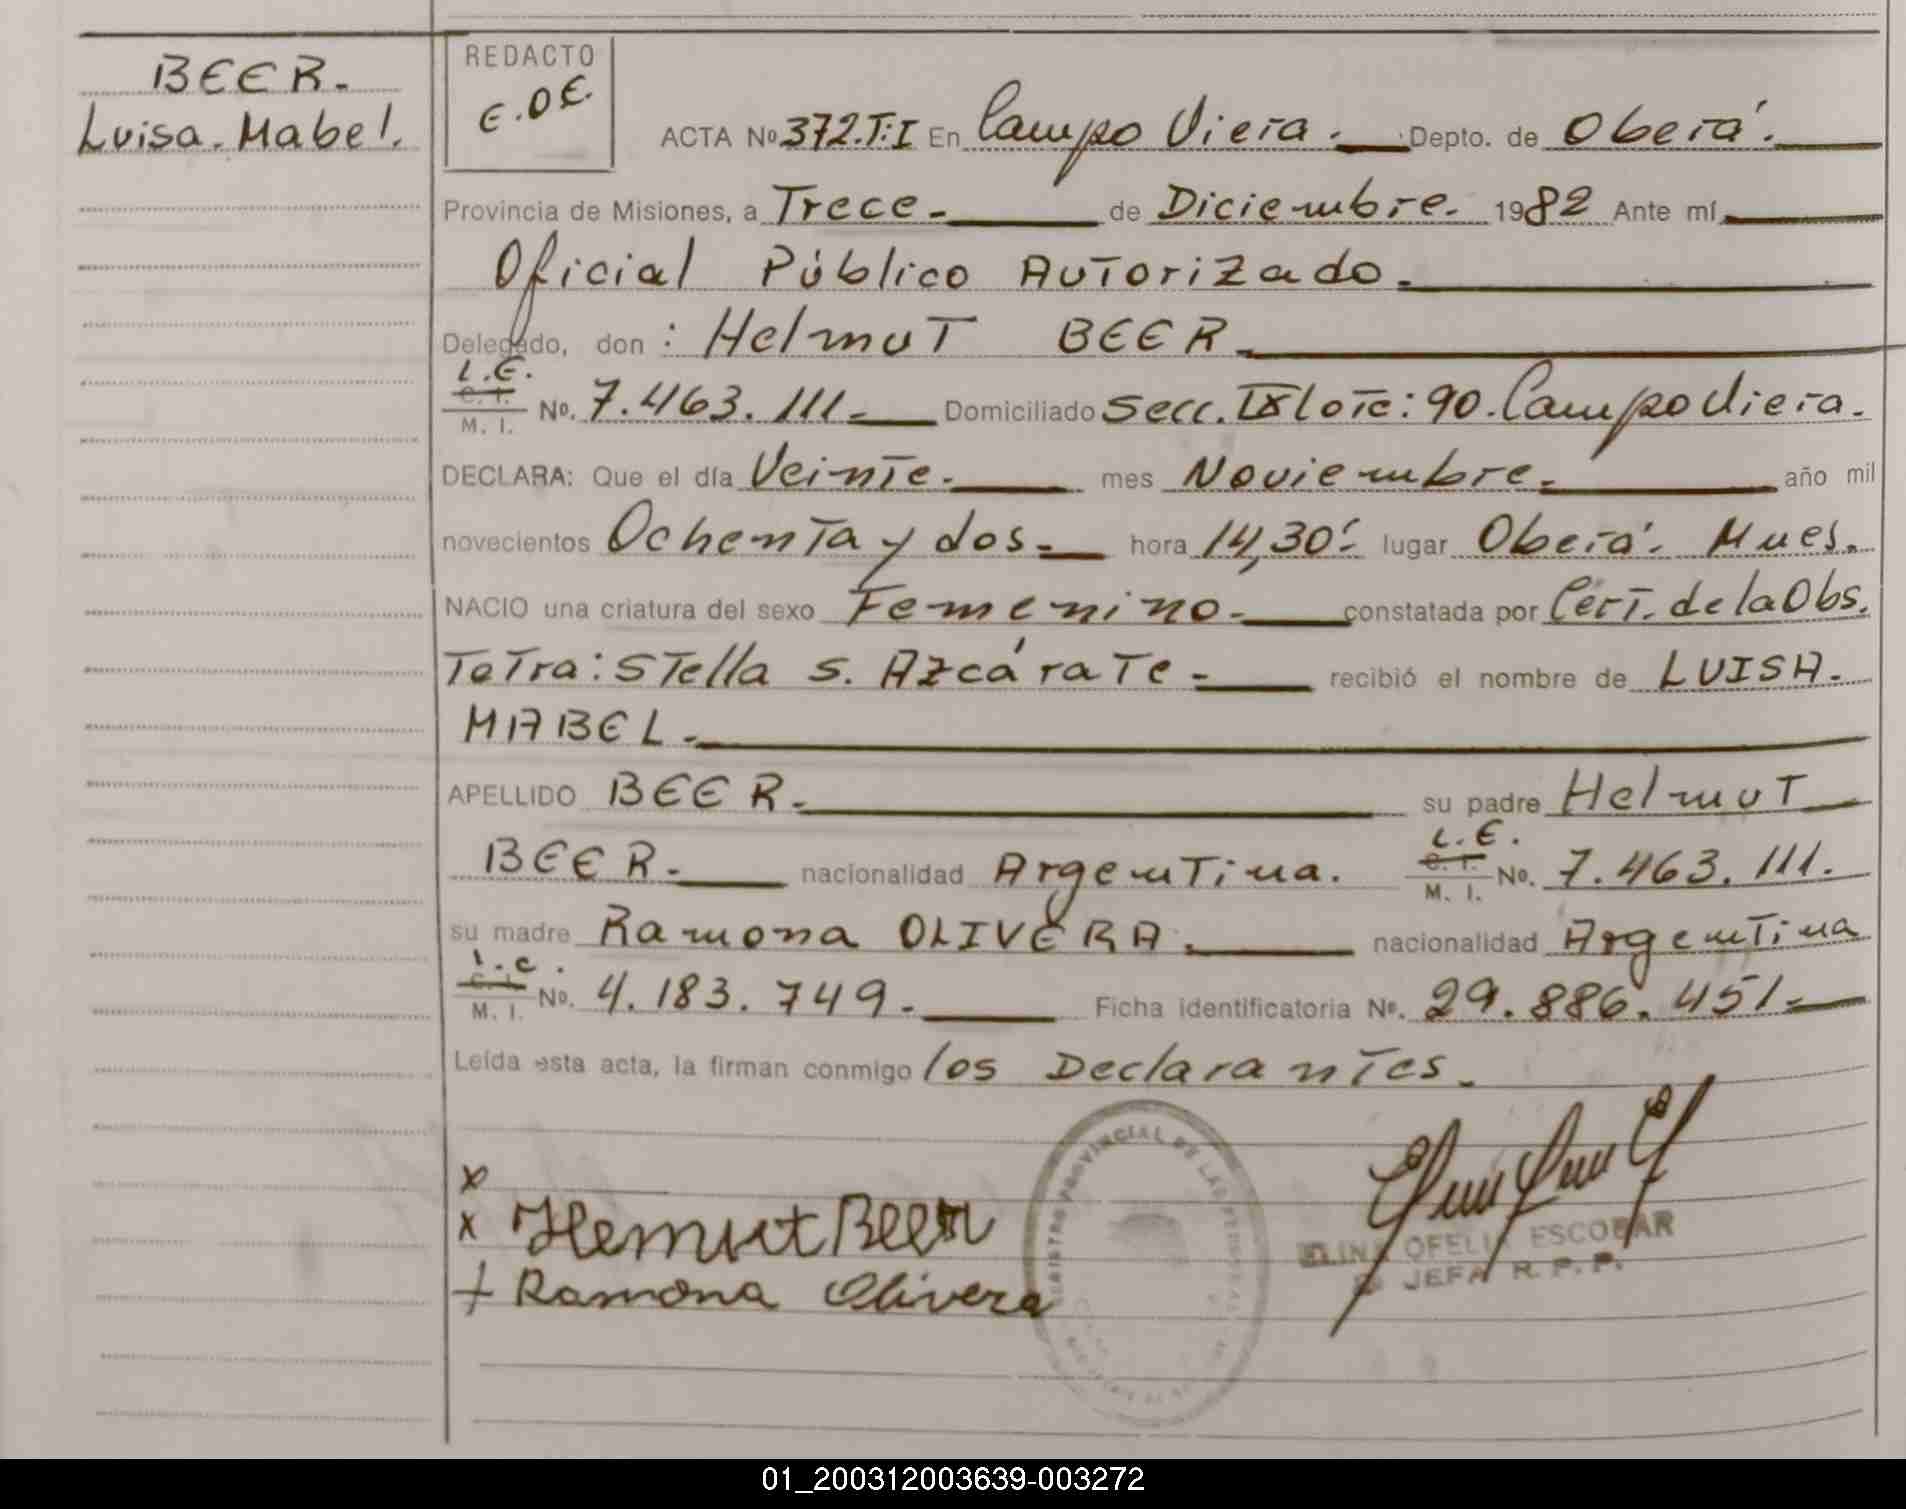 BEER.
Luisa. Mabel.
REDACTO
E.O.E.
ACTA Nº 372.T:I En Campo Viera. Depto. de Oberá.
Provincia de Misiones, a Trece. de Diciembre. 1982 Ante mí
Oficial Público Autorizado.
Delegado, don : Helmut BEER
L.E.
C. I.
M. I. No. 7.463.111. Domiciliado Secc. IX lote: 90. Campo Viera.
DECLARA: Que el día Veinte. mes Noviembre. año mil
novecientos Ochenta y dos. hora 14,30'. lugar Oberá. Mnes.
NACIO una criatura del sexo Femenino. constatada por Cert. de la Obs.
Tetra: Stella S. Azcárate. recibió el nombre de LUISA.
MABEL.
APELLIDO BEER. su padre Helmut
BEER. nacionalidad Argentina. L.E. C. I. M. I. No. 7.463.111.
su madre Ramona OLIVERA. nacionalidad Argentina
L.C.
C. I.
M. I. No. 4.183.749. Ficha identificatoria No. 29.886.451.
Leída esta acta, la firman conmigo los Declarantes.
x
x Hemut Beer
+ Ramona Olivera
REGISTRO PROVINCIAL DE LAS PERSONAS
ELINA OFELIA ESCOBAR
JEFA R. P. P.
01_200312003639-003272